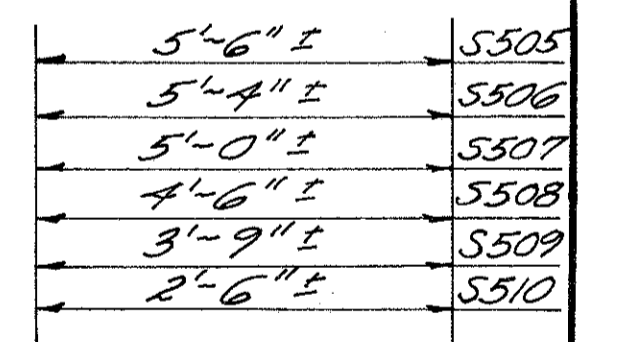 5'-6" ± S505
5'-4" ± S506
5'-0" ± S507
4'-6" ± S508
3'-9" ± S509
2'-6" ± S510